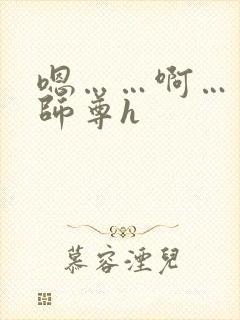 嗯……啊…
師尊h
慕容湮兒